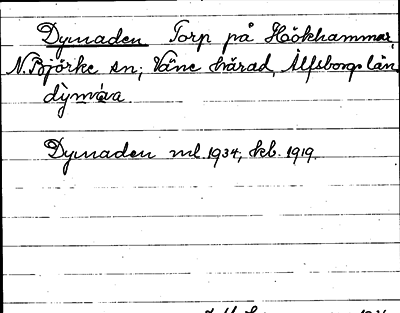 Dymaden Torp på Hökhammar,
N. Björke sn; Väne härad, Älfsborgs län.
dỳmáva.
Dymaden ml. 1934, kb. 1919.